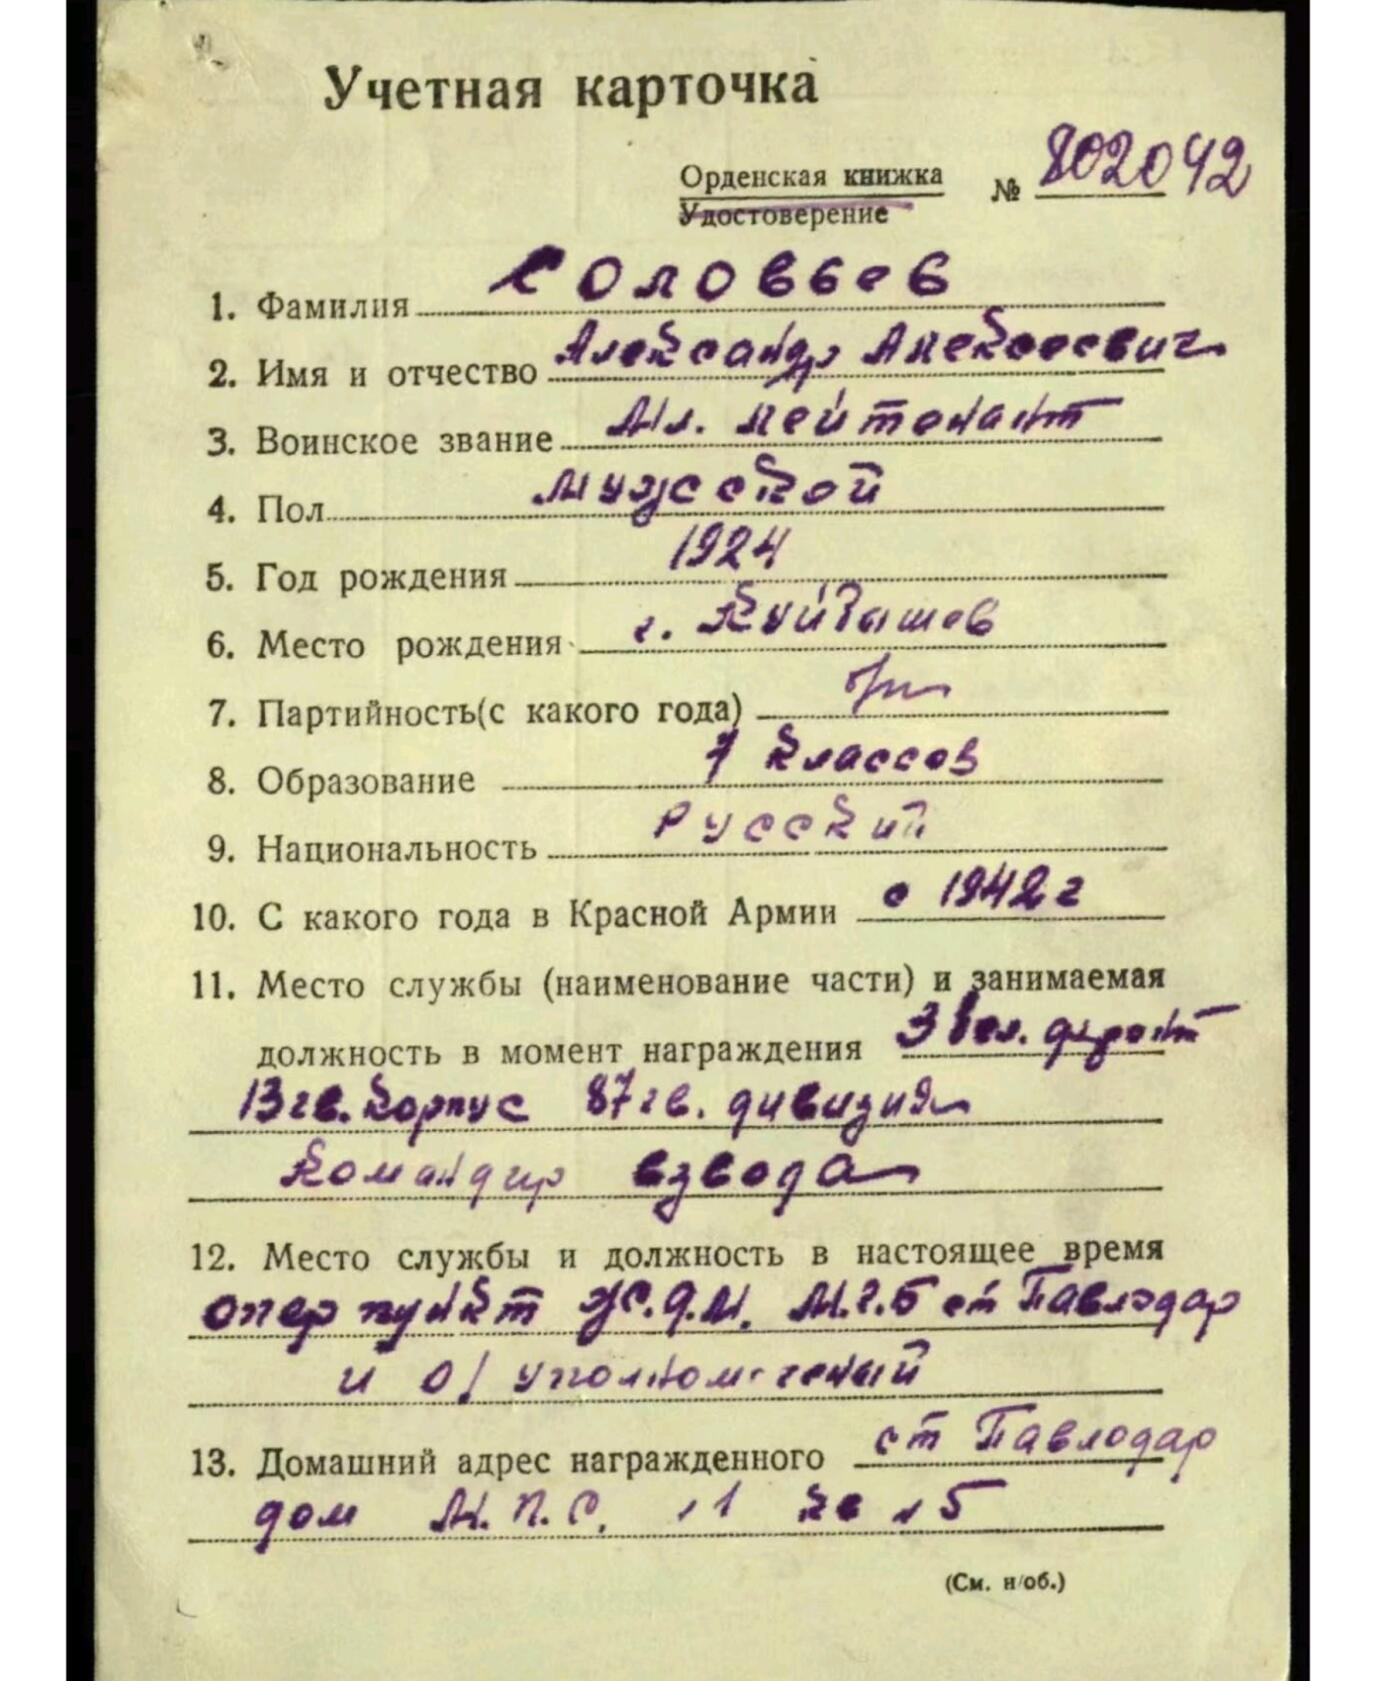 Учетная карточка
Орденская книжка № 802042
Удостоверение
1. Фамилия Соловьев
2. Имя и отчество Александр Алексеевич
3. Воинское звание Мл. лейтенант
4. Пол мужской
5. Год рождения 1924
6. Место рождения г. Куйбышев
7. Партийность(с какого года)
8. Образование 7 классов
9. Национальность Русский
10. С какого года в Красной Армии с 1942 г
11. Место службы (наименование части) и занимаемая
должность в момент награждения 3 Бел. фронт
13 гв. корпус 87 гв. дивизия
Командир взвода
12. Место службы и должность в настоящее время
опер пункт ж.д.м. М.Г.Б ст Павлодар
и о/ уполномоченый
13. Домашний адрес награжденного ст Павлодар
дом М.П.С. 1 кв 5
(См. н/об.)